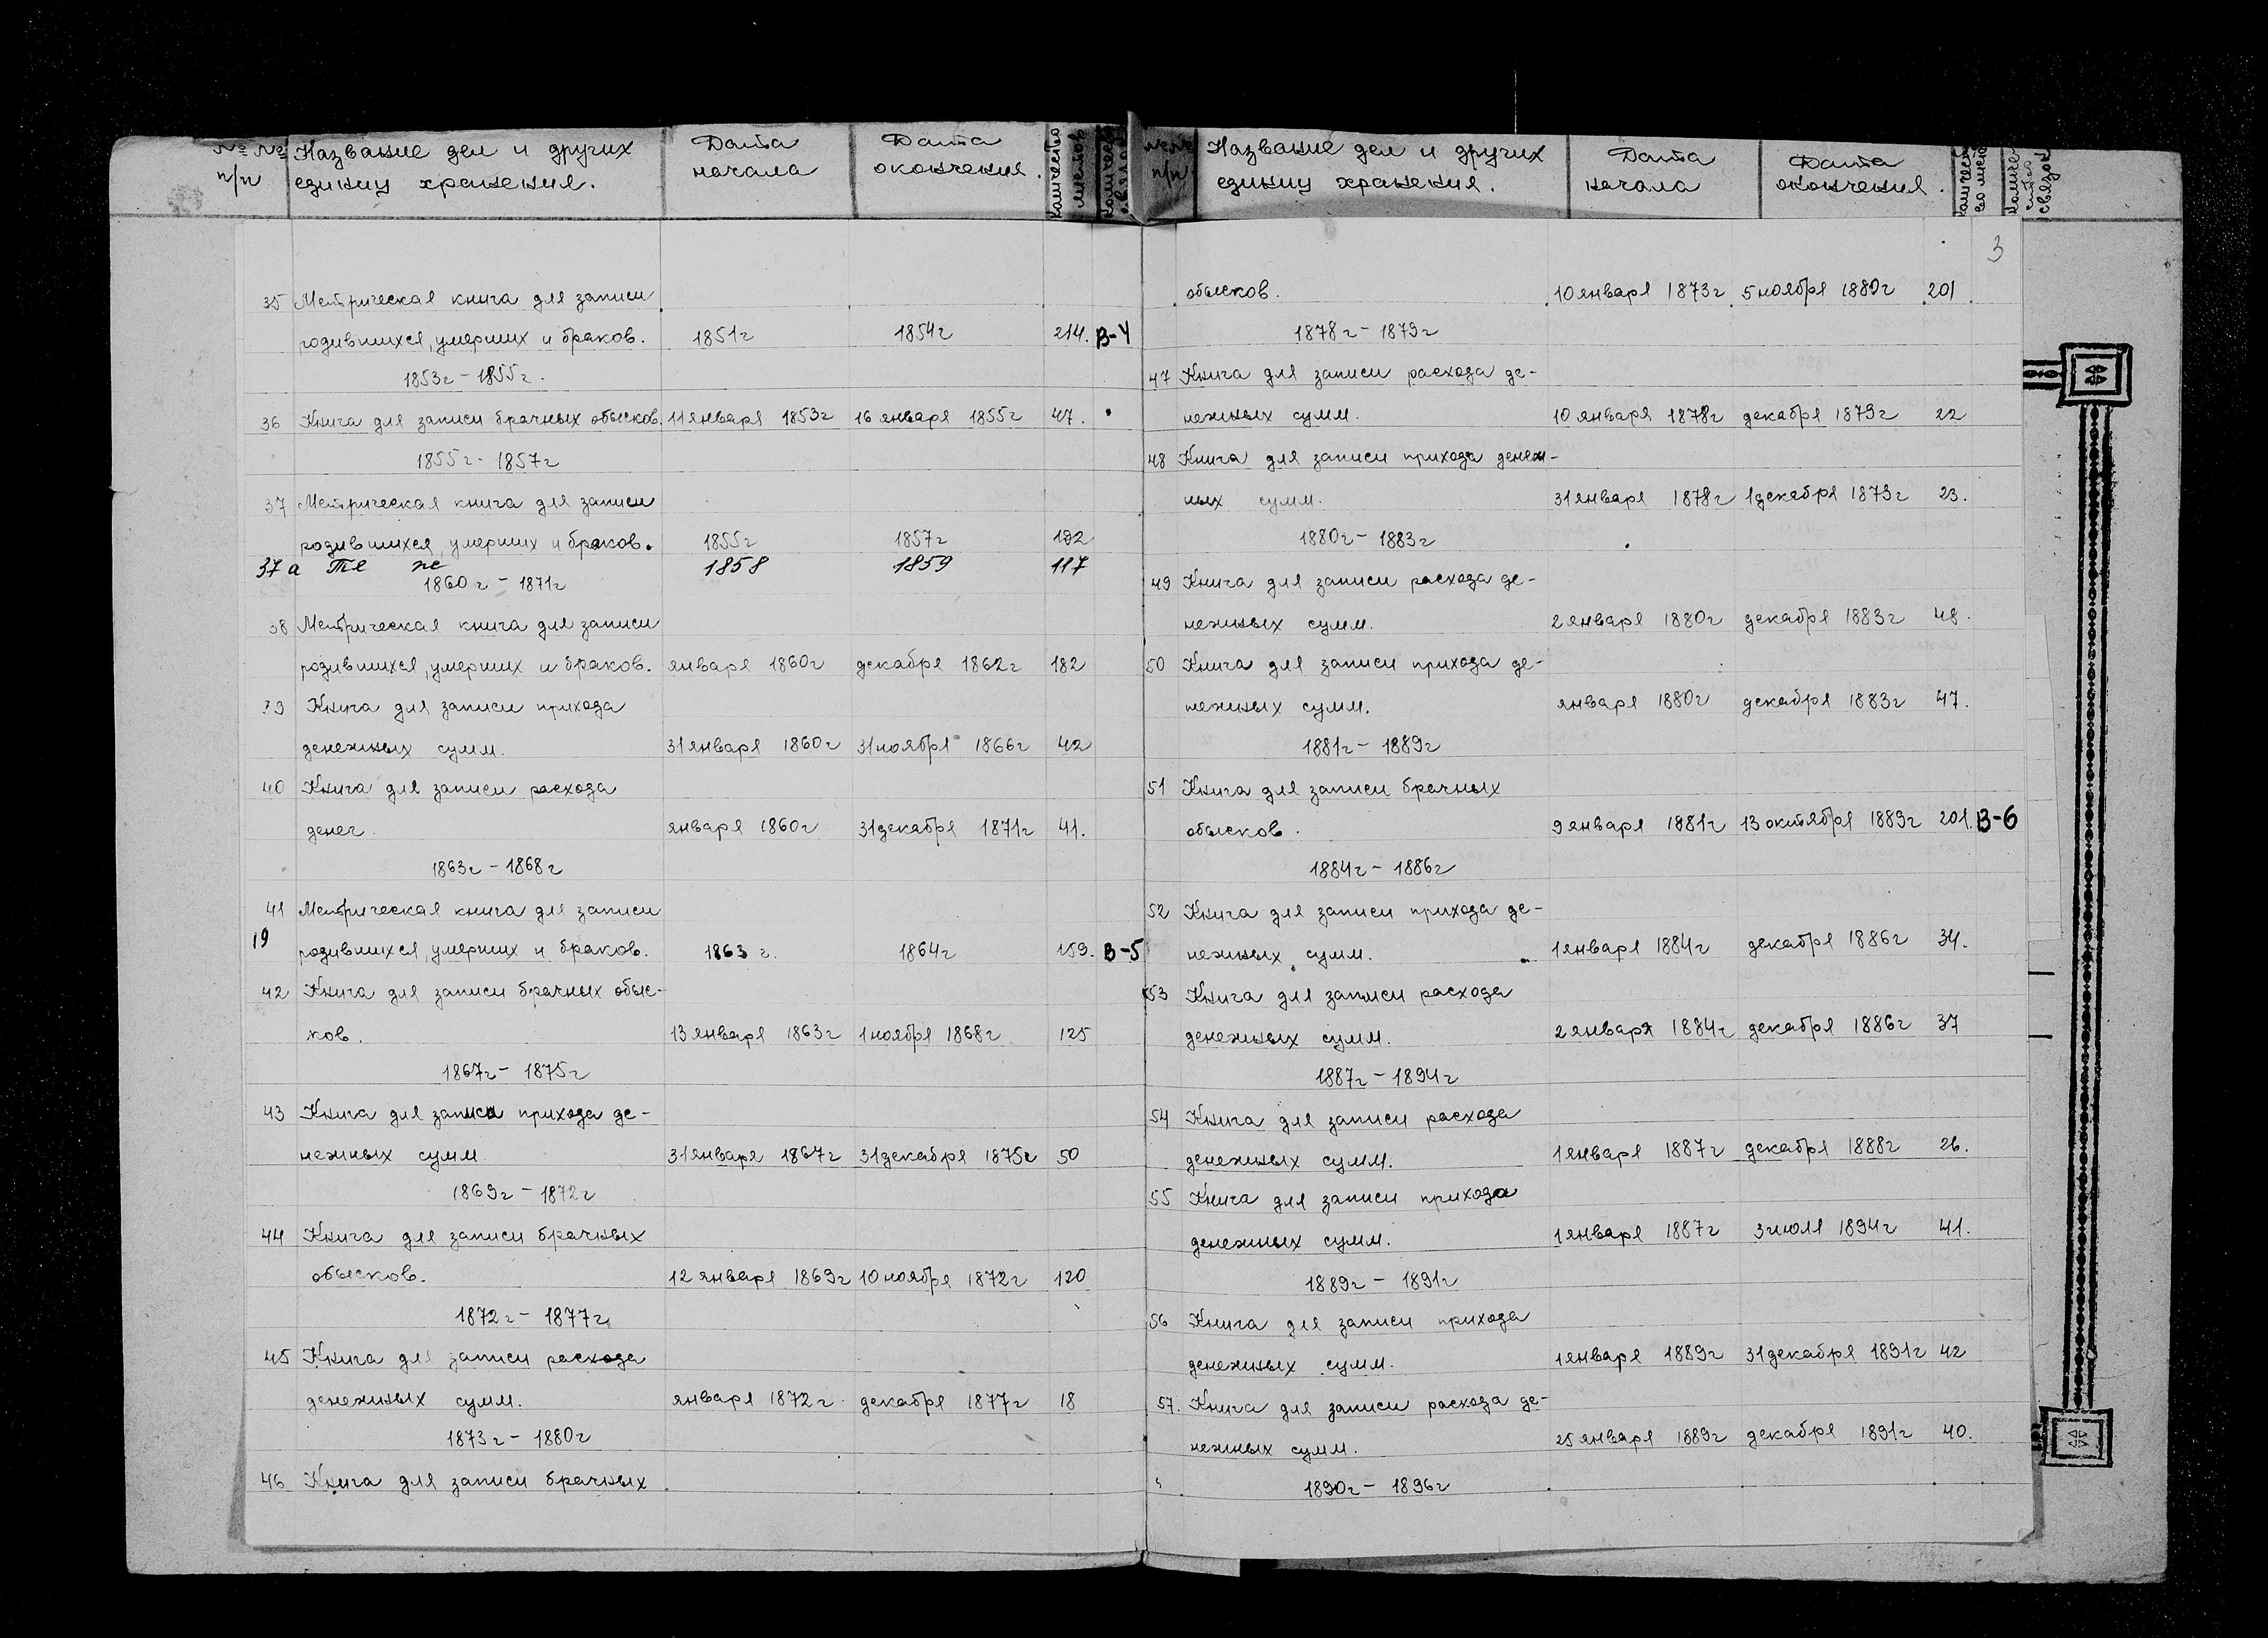 № № п/п Название дел и других единиц хранения. Дата начала Дата окончения. Количество листов
35 Метрическая книга для записи
родившихся, умерших и браков. 1851г 1854г 214. В-4
1853г - 1855г.
36 Книга для записи брачных обысков. 11 января 1853г 16 января 1855г 47.
1855г - 1857г
37 Метрическая книга для записи
родившихся, умерших и браков. 1855г 1857г 192
37а То же 1858 1859 117
1860г - 1871г
38 Метрическая книга для записи
родившихся, умерших и браков. января 1860г декабря 1862г 182
39 Книга для записи прихода
денежных сумм. 31 января 1860г 31 ноября 1866г 42
40 Книга для записи расхода
денег. января 1860г 31 декабря 1871г 41.
1863г - 1868г
41 Метрическая книга для записи
19 родившихся, умерших и браков. 1863 г. 1864г 159. В-5
42 Книга для записи брачных обыс-
ков. 13 января 1863г 1 ноября 1868г 125
1867г - 1875г
43 Книга для записи прихода де-
нежных сумм. 31 января 1867г 31 декабря 1875г 50
1869г - 1872г
44 Книга для записи брачных
обысков. 12 января 1869г 10 ноября 1872г 120
1872г - 1877г
45 Книга для записи расхода
денежных сумм. января 1872г. декабря 1877г 18
1873г - 1880г
46 Книга для записи брачных
№№ п/п. Название дел и других единиц хранения. Дата начала Дата окончения.
3
обысков. 10 января 1873г. 5 ноября 1880г 201
1878г - 1879г
47 Книга для записи расхода де-
нежных сумм. 10 января 1878г декабря 1879г 22
48 Книга для записи прихода денеж-
ных сумм. 31 января 1878г 1 декабря 1879г 23.
1880г - 1883г
49 Книга для записи расхода де-
нежных сумм. 2 января 1880г декабря 1883г 48.
50 Книга для записи прихода де-
нежных сумм. января 1880г декабря 1883г 47.
1881г - 1889г
51 Книга для записи брачных
обысков. 9 января 1881г 13 октября 1889г 201. В-6
1884г - 1886г
52 Книга для записи прихода де-
нежных сумм. 1 января 1884г декабря 1886г 34.
53 Книга для записи расхода
денежных сумм. 2 января 1884г декабря 1886г 37
1887г - 1894г
54 Книга для записи расхода
денежных сумм. 1 января 1887г декабря 1888г 26.
55 Книга для записи прихода
денежных сумм. 1 января 1887г 3 июля 1894г 41.
1889г - 1891г
56 Книга для записи прихода
денежных сумм. 1 января 1889г 31 декабря 1891г 42
57. Книга для записи расхода де-
нежных сумм. 25 января 1889г декабря 1891г 40.
1890г - 1896г